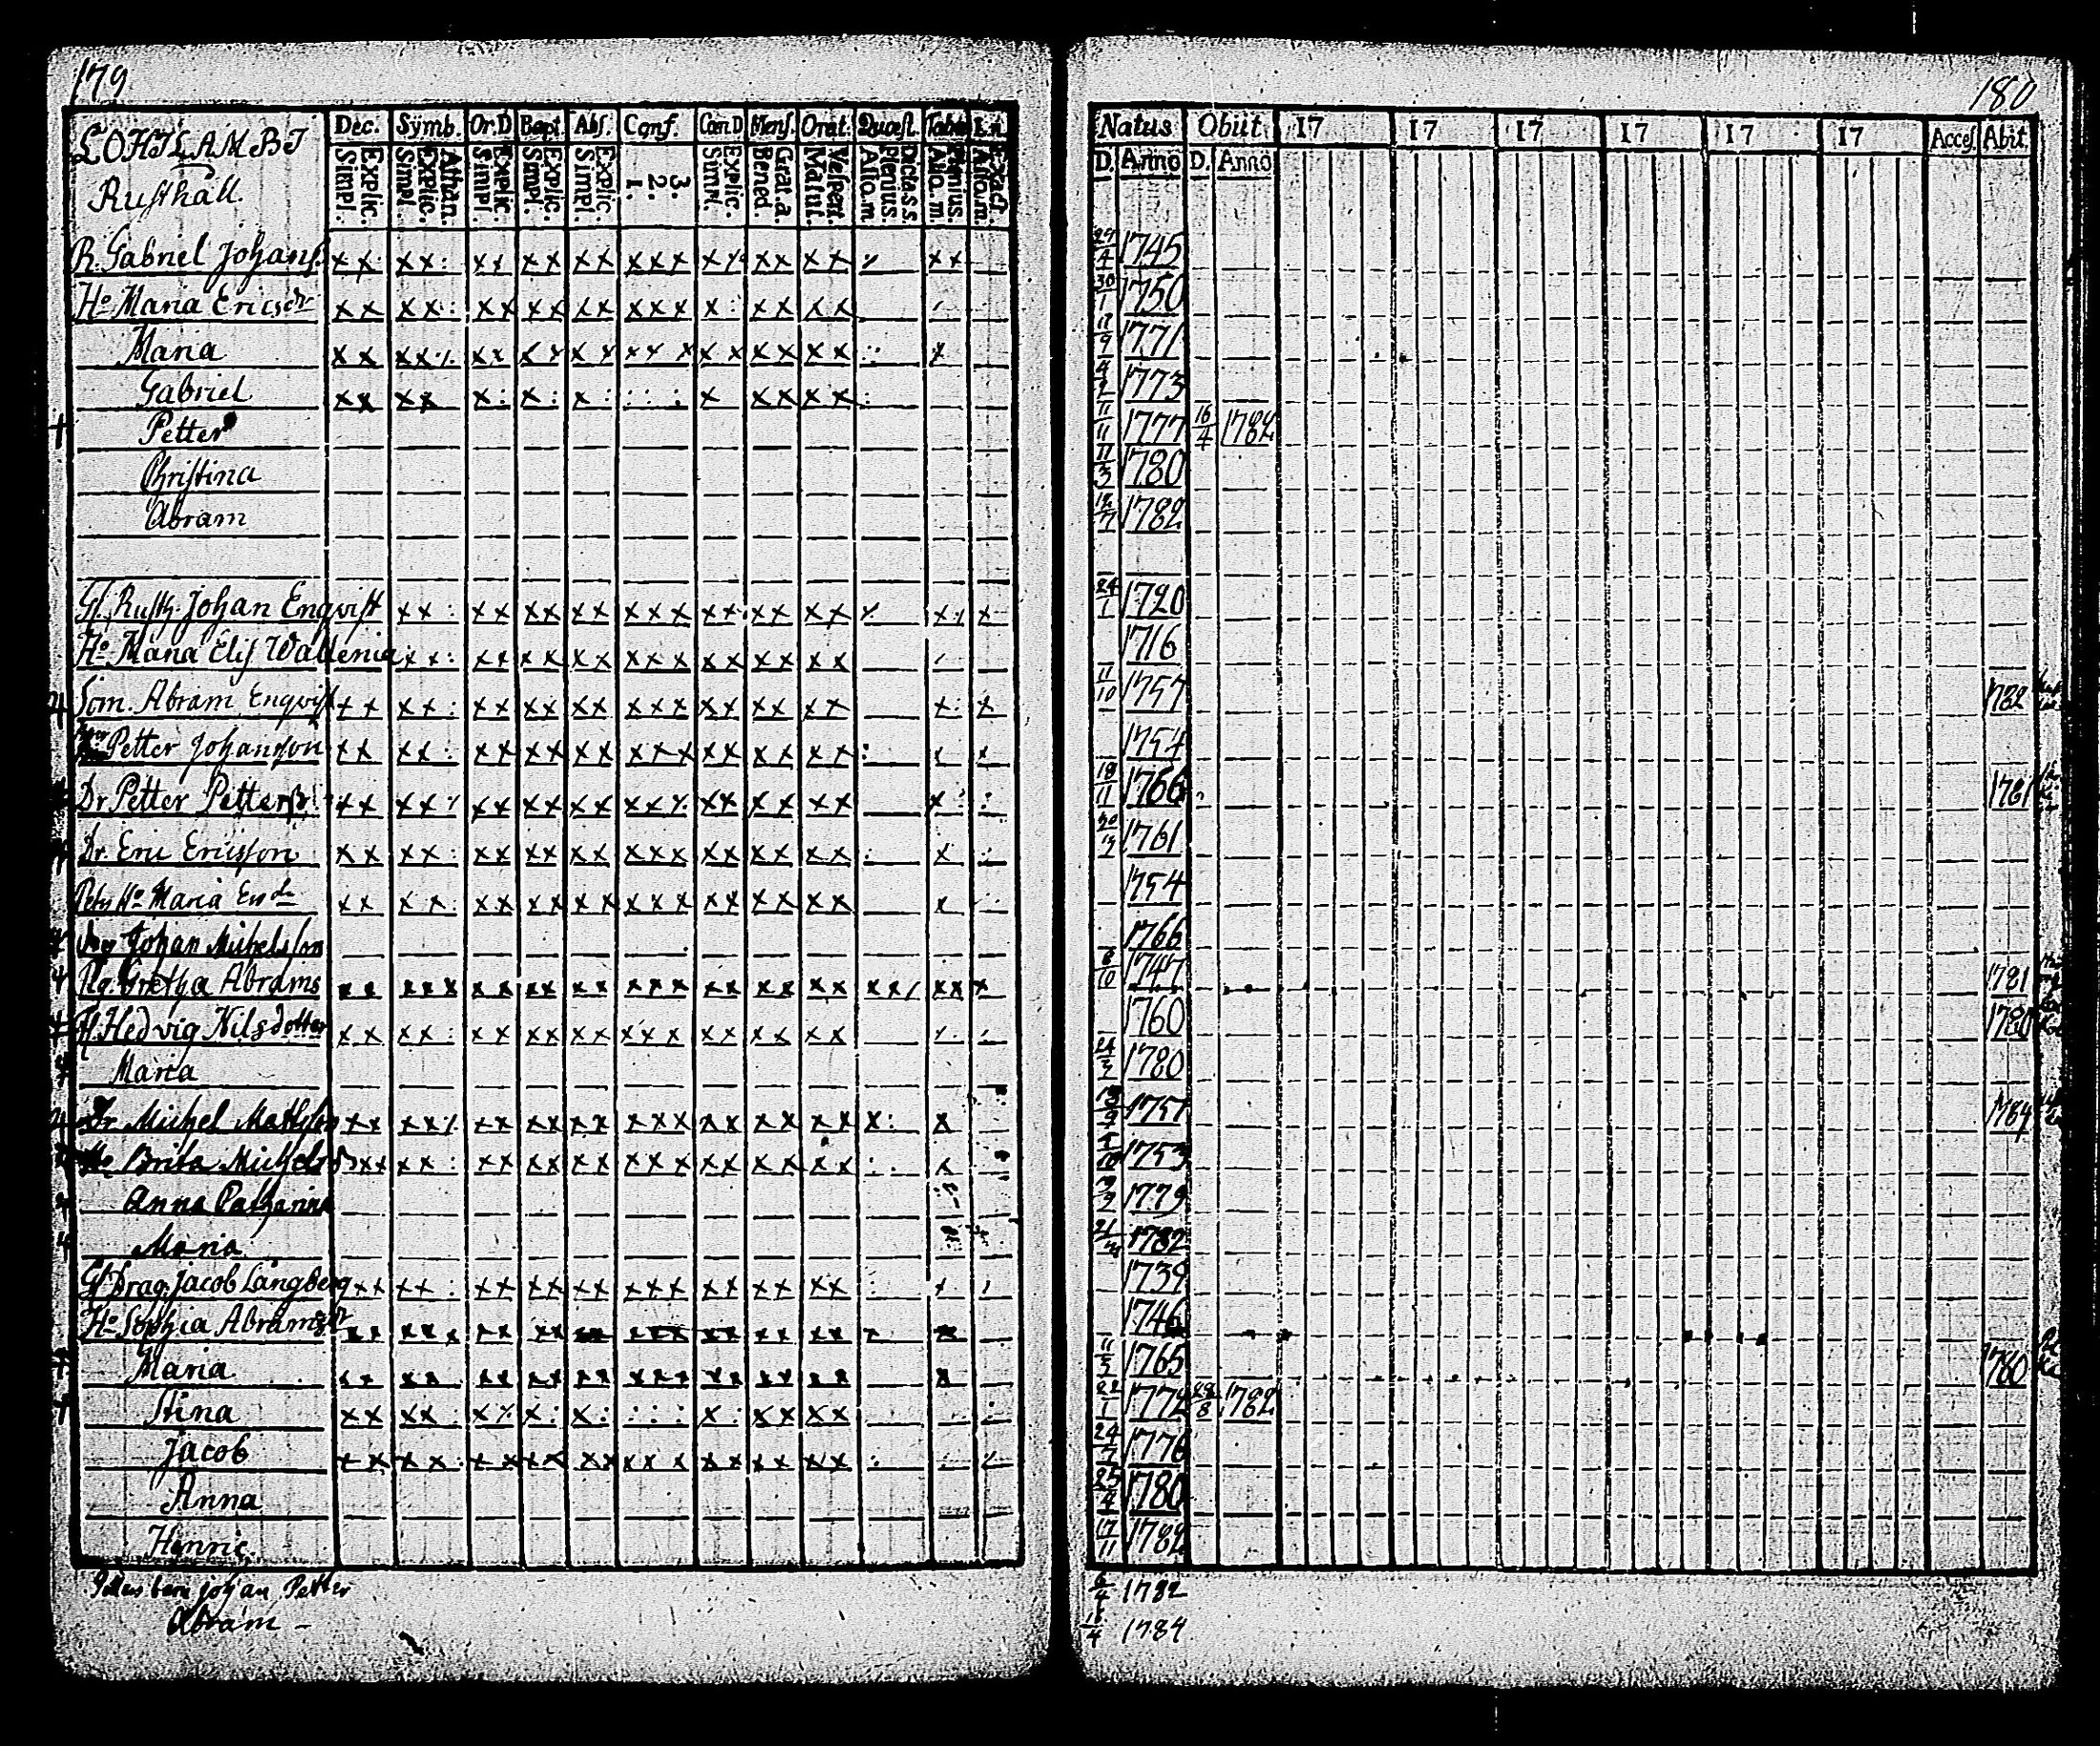 179
LOHILAMBI
Rusthåll.
Dec. Symb. Or.D Bapt. Abs. Conf. Cœn D Mens. Orat. Quæst. Tabb
Simpl. Explic. Simpl. Explic. Athan. Simpl. Explic. Simpl. Explic. Simpl. Explic. 1. 2. 3. Simpl. Explic. Bened. Grat.a Matut. Vespert. Aſſo.m. Plenius Dicta.s.s. Aſſo.m. Plenius. Aſſo.m. Exact.
R. Gabriel Johanſ
Ho Maria Ericsdr
Maria
Gabriel
Petter
Chriſtina
Abram
Gl. Ruſth. Johan Enqviſt
Ho Maria Eliſ Wallenia
Son. Abram Enqviſt
Petter Johanſſon
Dr Petter Petterſ
Dr. Eric Ericſſon
Pett Ho Maria
Johan Michelsſon
Pig. Gretha Abrams
H. Hedvig Nilsdotter
Maria
Dr Michel Mattſſon
Ho Brita Michelsd
Anna Catharina
Maria
Gl Drag. Jacob Långberg
Ho Sophia Abramsdr
Maria
Stina
Jacob
Anna
Henric.
Petters barn Johan Petter
Abram –
180
Natus Obiit 17 17 17 17 17 17 Acceſ. Abiit
D. Anno D. Anno
29/4 1745
30/1 1750
17/9 1771
4/2 1773
11/11 1777 16/4 1782
17/3 1780
12/7 1782
24/1 1720
1716
11/10 1757 1782
1754
18/11 1766 1781
20/3 1761
1754
1766
8/10 1747 1781
1760 1780
24/2 1780
18/9 1757 1784
1753
1779
21/ 1782
1739
1746
11/5 1765 1780
22/1 1772 28/8 1782
24/7 1776
25/4 1780
17/11 1782
6/4 1782
18/4 1784